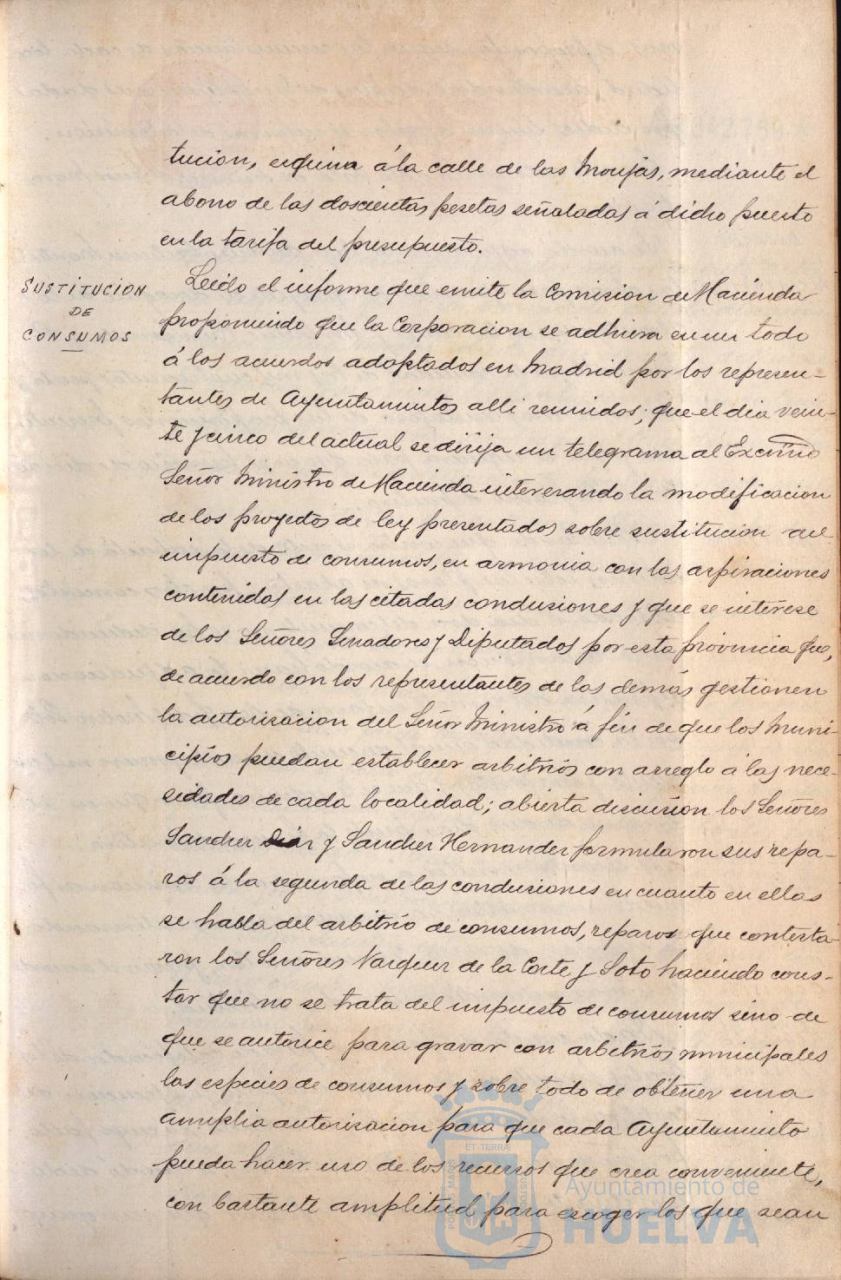 tucion, esquina á la calle de las Monjas, mediante el
abono de las doscientas pesetas señaladas á dicho puesto
en la tarifa del presupuesto.
SUSTITUCION
DE
CONSUMOS
Leido el informe que emite la Comision de Hacienda
proponiendo que la Corporacion se adhiera en un todo
á los acuerdos adoptados en Madrid por los represen-
tantes de Ayuntamientos alli reunidos; que el dia vein-
te y cinco del actual se dirija un telegrama al Excmo
Señor Ministro de Hacienda interesando la modificacion
de los proyectos de ley presentados sobre sustitucion del
impuesto de consumos, en armonia con las aspiraciones
contenidas en las citadas conclusiones y que se interese
de los Señores Senadores y Diputados por esta provincia que,
de acuerdo con los representantes de las demás gestionen
la autorisacion del Señor Ministro á fin de que los Muni-
cipios puedan establecer arbitrios con arreglo á las nece-
sidades de cada localidad; abierta discusion los Señores
Sanchez Diaz y Sanchez Hernandez formularon sus repa-
ros á la segunda de las conclusiones en cuanto en ellas
se habla del arbitrio de consumos, reparos que contesta-
ron los Señores Vazquez de la Corte y Soto haciendo cons-
tar que no se trata del impuesto de consumos sino de
que se autorice para gravar con arbitrios municipales
las especies de consumos y sobre todo de obtener una
amplia autorisacion para que cada Ayuntamiento
pueda hacer uso de los recursos que crea conveniente,
con bastante amplitud para escoger los que sean
Ayuntamiento de
HUELVA